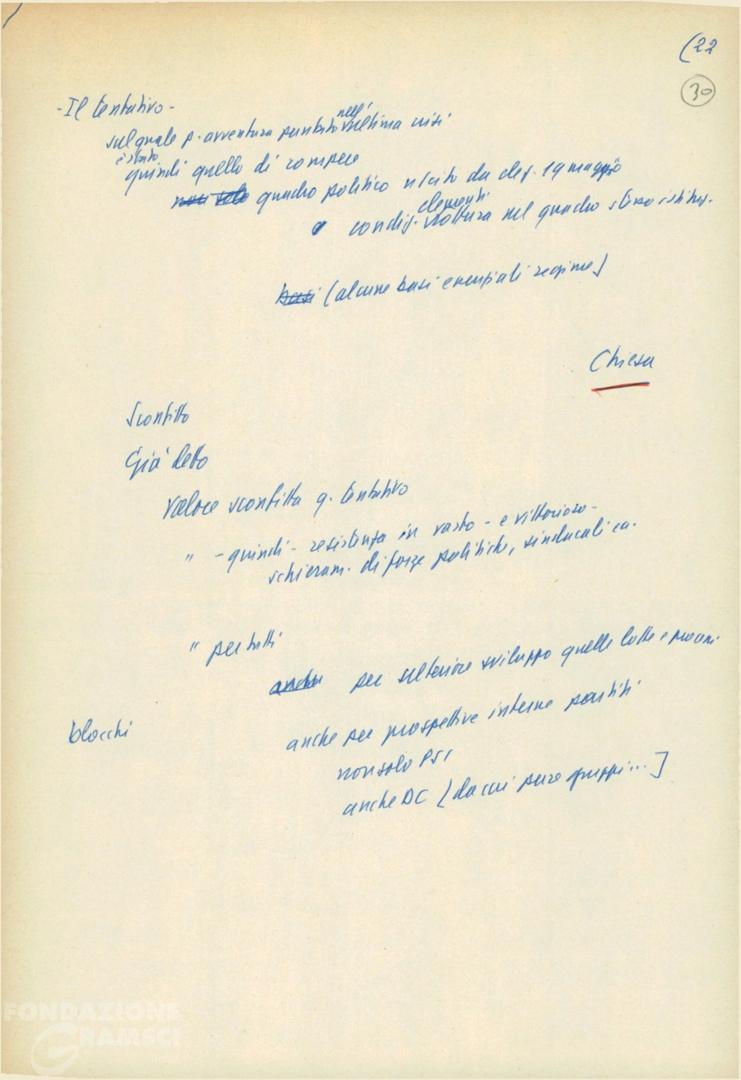 (22
30
- Il tentativo -
sul quale p. avventura puntato nell' ultima crisi
è stato
quindi quello di rompere
non solo quadro politico uscito da elez. 19 maggio
e condiz. elementi rottura nel quadro stesso istituz.
basi (alcune basi essenziali regime)
Chiesa
Sconfitto
Già detto
Valore sconfitta q. tentativo
" - quindi - resistenza in vasto - e vittorioso -
schieram. di forze politiche, sindacali ca.
" per tutti
anche per ulteriore sviluppo quelle lotte e
blocchi
anche per prospettive interne partiti
non solo PSI
anche DC (da cui pure gruppi...]
FONDAZIONE
GRAMSCI